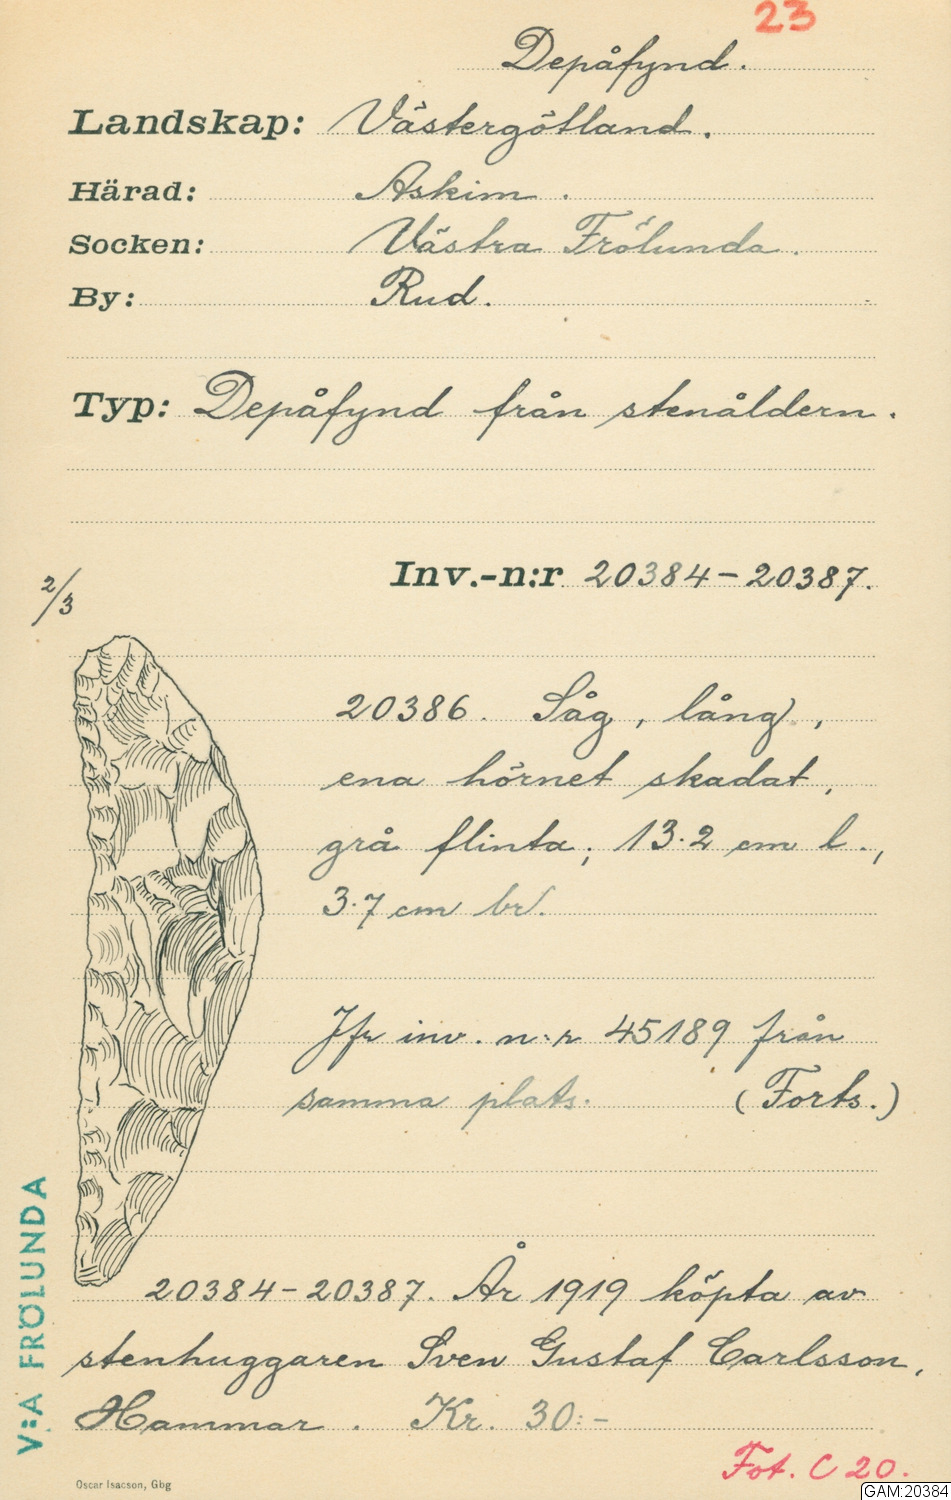 23
Depåfynd.
Landskap: Västergötland.
Härad: Askim.
Socken: Västra Frölunda.
By: Rud.
Typ: Depåfynd från stenåldern.
Inv.-n:r 20384-20387.
2/3
20386. Såg, lång,
ena hörnet skadat,
grå flinta; 13.2 cm l.,
3.7 cm br.
Jfr inv. n:r 45189 från
samma plats. (Forts.)
20384-20387. År 1919 köpta av
stenhuggaren Sven Gustaf Carlsson,
Hammar. Kr. 30:-
V:A FRÖLUNDA
Fot. C 20.
Oscar Isacson, Gbg
GAM:20384